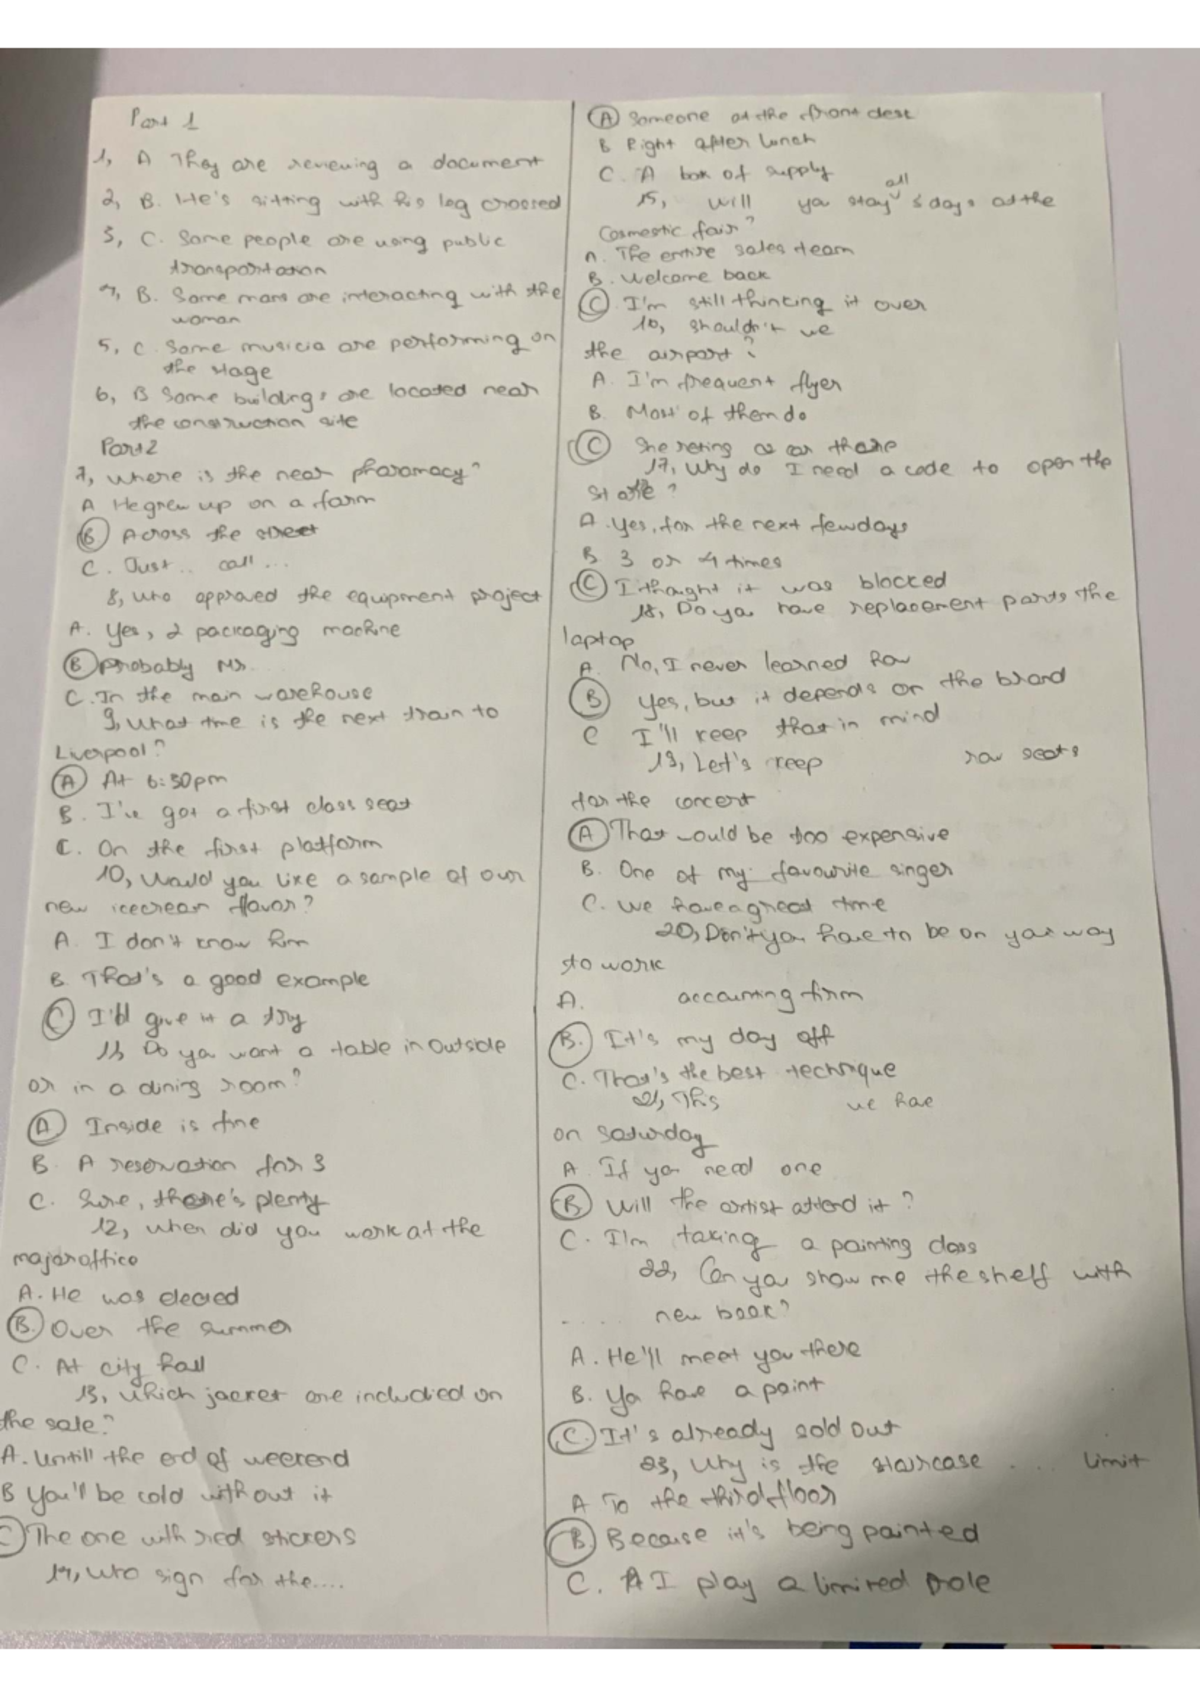 Part 1
1, A They are reviewing a document
2, B. He's sitting with his leg croosed
3, C. Some people are using public
transportation
4, B. Some mans are interacting with the
woman
5, C. Some musicia are performing on
the stage
6, B Some buildings are located near
the construction site
Part 2
7, Where is the near pharamacy?
A He grew up on a farm
B Across the street
C. Just .. call ...
8, Who approved the equipment project
A. Yes, 2 packaging machine
B probably Mr.
C. In the main warehouse
9, What time is the next train to
Liverpool?
A At 6:30pm
B. I've got a first class seat
C. On the first platform
10, Would you like a sample of our
new icecream flavor?
A. I don't know him
B. That's a good example
C I'd give it a try
11, Do you want a table in outside
or in a dining room?
A Inside is fine
B. A reservation for 3
C. Sure, there's plenty
12, When did you work at the
major office
A. He was elected
B. Over the summer
C. At city hall
13, Which jacket are included on
the sale?
A. Untill the end of weekend
B You'll be cold without it
C The one with ried stickers
14, Who sign for the....
A Someone at the front desk
B Right after lunch
C. A box of supply
15, Will you stay all 3 days at the
Cosmestic fair?
A. The entire sales team
B. Welcome back
C. I'm still thinking it over
16, Shouldn't we
the airport?
A. I'm frequent flyer
B. Most of them do
C She reting a car there
17, Why do I need a code to open the
A. Yes, for the next few days
B 3 or 4 times
C I thought it was blocked
18, Do you have replacement parts the
laptop
A. No, I never learned how
B Yes, but it depends on the brand
C I'll keep that in mind
19, Let's keep row seats
for the concert
A That would be too expensive
B. One of my favourite singer
C. We have a great time
20, Don't you have to be on your way
to work
A. accounting firm
B. It's my day off
C. That's the best technique
21, This we have
on saturday
A. If you need one
B Will the artist attend it?
C. I'm taking a painting class
22, Can you show me the shelf with
.... new book?
A. He'll meet you there
B. You have a point
C. It's already sold out
23, Why is the staircase .... limit
A To the third floor
B. Because it's being painted
C. I play a limited role